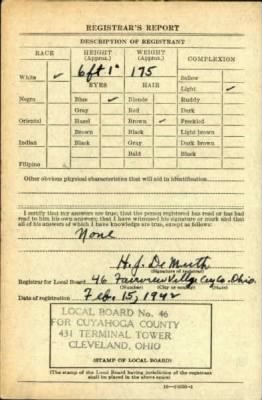 REGISTRAR'S REPORT
DESCRIPTION OF REGISTRANT
RACE HEIGHT (Approx.) WEIGHT (Approx.) COMPLEXION
6ft 1" 175
White ✓ Sallow
EYES HAIR Light ✓
Negro Blue ✓ Blonde Ruddy
Gray Red Dark
Oriental Hazel Brown ✓ Freckled
Brown Black Light brown
Indian Black Gray Dark brown
Bald Black
Filipino
Other obvious physical characteristics that will aid in identification
I certify that my answers are true; that the person registered has read or has had
read to him his own answers; that I have witnessed his signature or mark and that
all of his answers of which I have knowledge are true, except as follows:
None
H. J. DeMuth
(Signature of registrar)
Registrar for Local Board 46 Fairview Village Cuy. Co. Ohio.
(Number) (City or county) (State)
Date of registration Feb. 15, 1942
LOCAL BOARD No. 46
FOR CUYAHOGA COUNTY
431 TERMINAL TOWER
CLEVELAND, OHIO
(STAMP OF LOCAL BOARD)
(The stamp of the Local Board having jurisdiction of the registrant
shall be placed in the above space.)